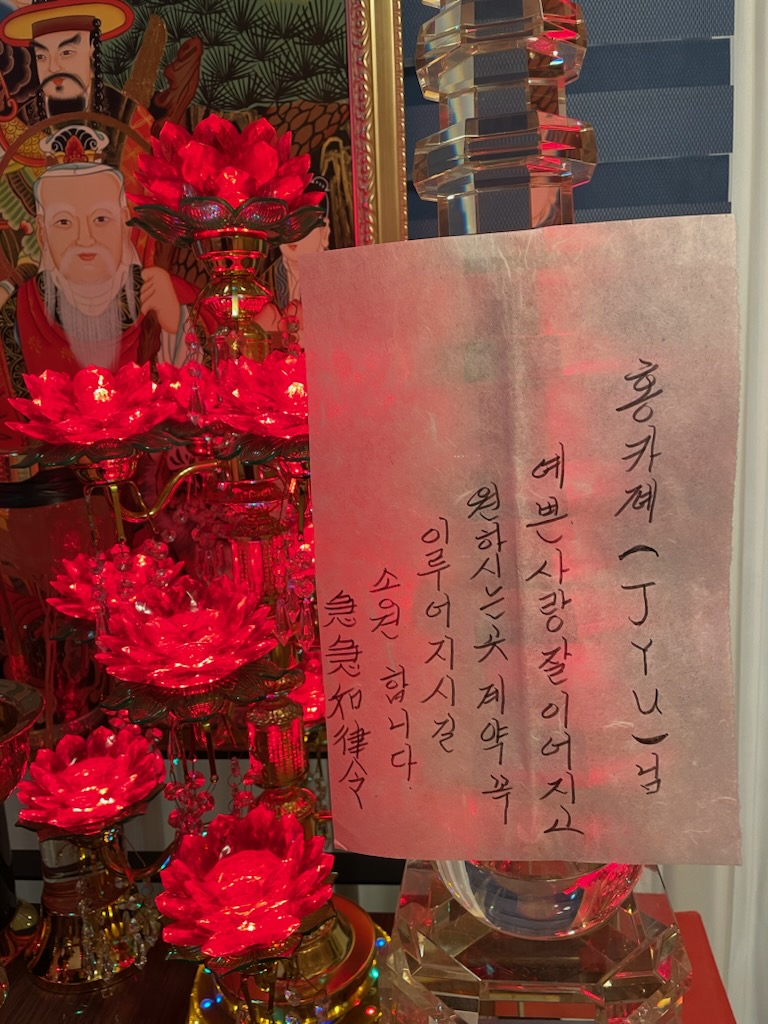 홍카페(JYU)님
예쁜사랑잘이어지고
원하시는곳계약꼭
이루어지시길
소원합니다.
急急如律令